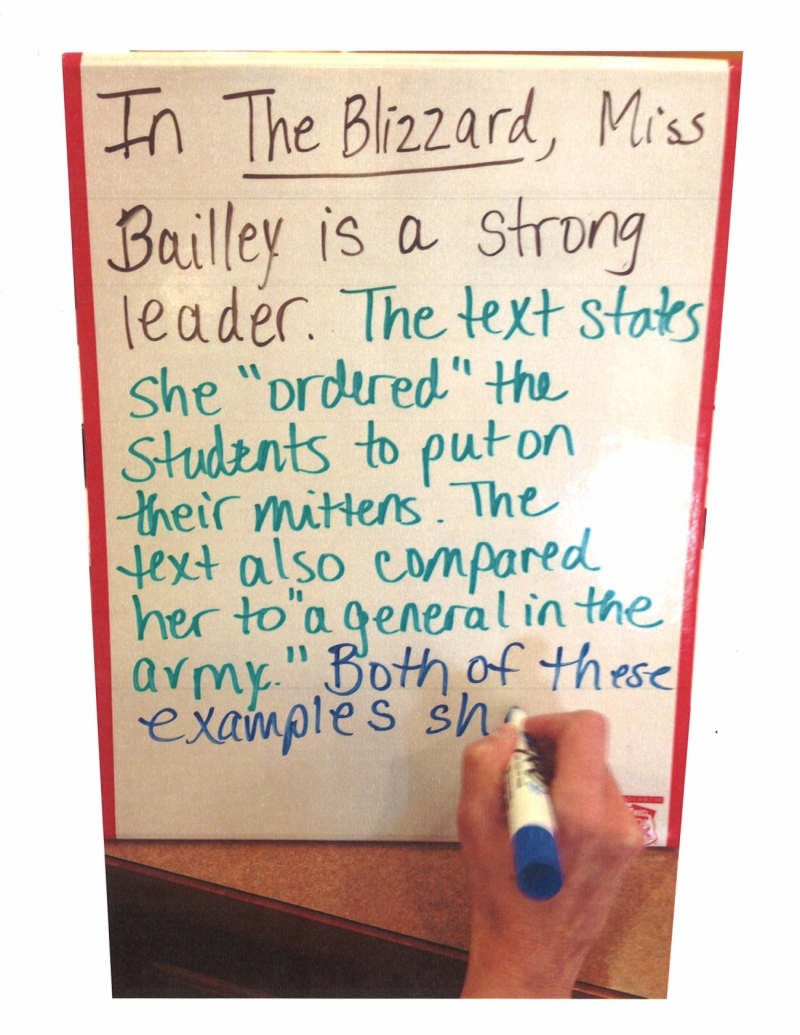 In The Blizzard, Miss
Bailley is a strong
leader. The text states
she "ordered" the
students to put on
their mittens. The
text also compared
her to "a general in the
army." Both of these
examples sh